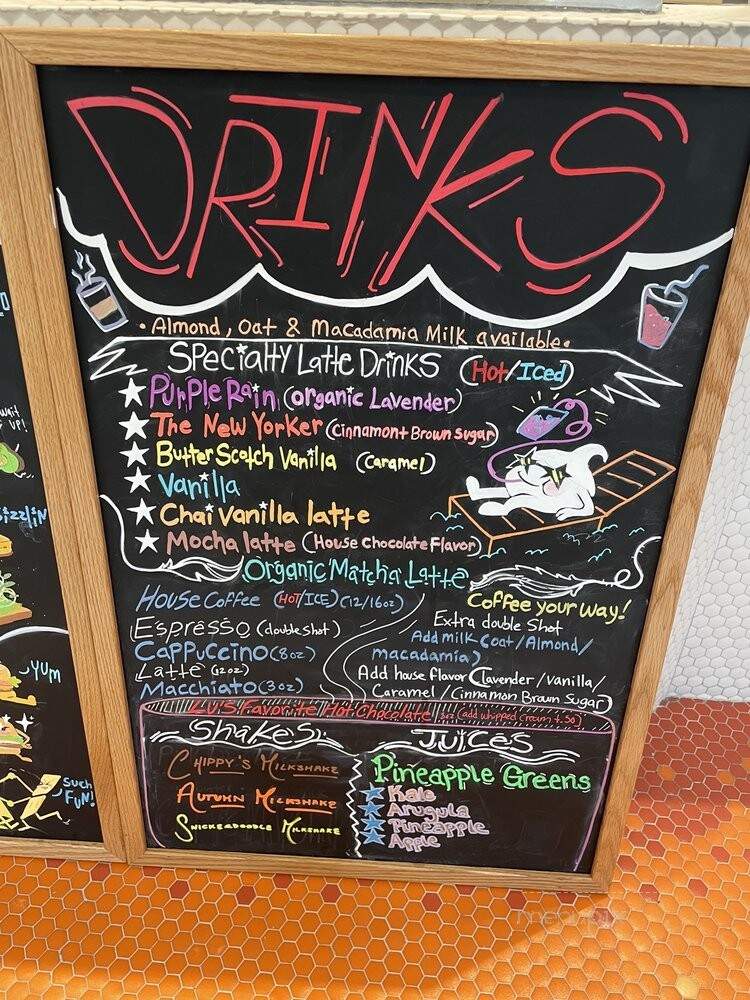 DRINKS
• Almond, Oat & Macadamia Milk available.
Specialty Latte Drinks (Hot/Iced)
Purple Rain (organic Lavender)
The New Yorker (Cinnamon + Brown Sugar)
Butter Scotch Vanilla (Caramel)
Vanilla
Chai Vanilla latte
Mocha latte (House Chocolate Flavor)
Organic Matcha Latte
House Coffee (HOT/ICE) (12/16oz)
Espresso (double shot)
Cappuccino (8oz)
Latte (12oz)
Macchiato (3oz)
Coffee your way!
Extra double Shot
Add milk (oat/Almond/
macadamia)
Add house flavor (Lavender/vanilla/
Caramel/Cinnamon Brown Sugar)
Favorite Hot Chocolate (add whipped cream +.50)
Shakes:
Chippy's Milkshake
Autumn Milkshake
Snickerdoodle Milkshake
Juices
Pineapple Greens
Kale
Arugula
Pineapple
Apple
wait
UP!
Sizzlin
YUM
Such
FUN!